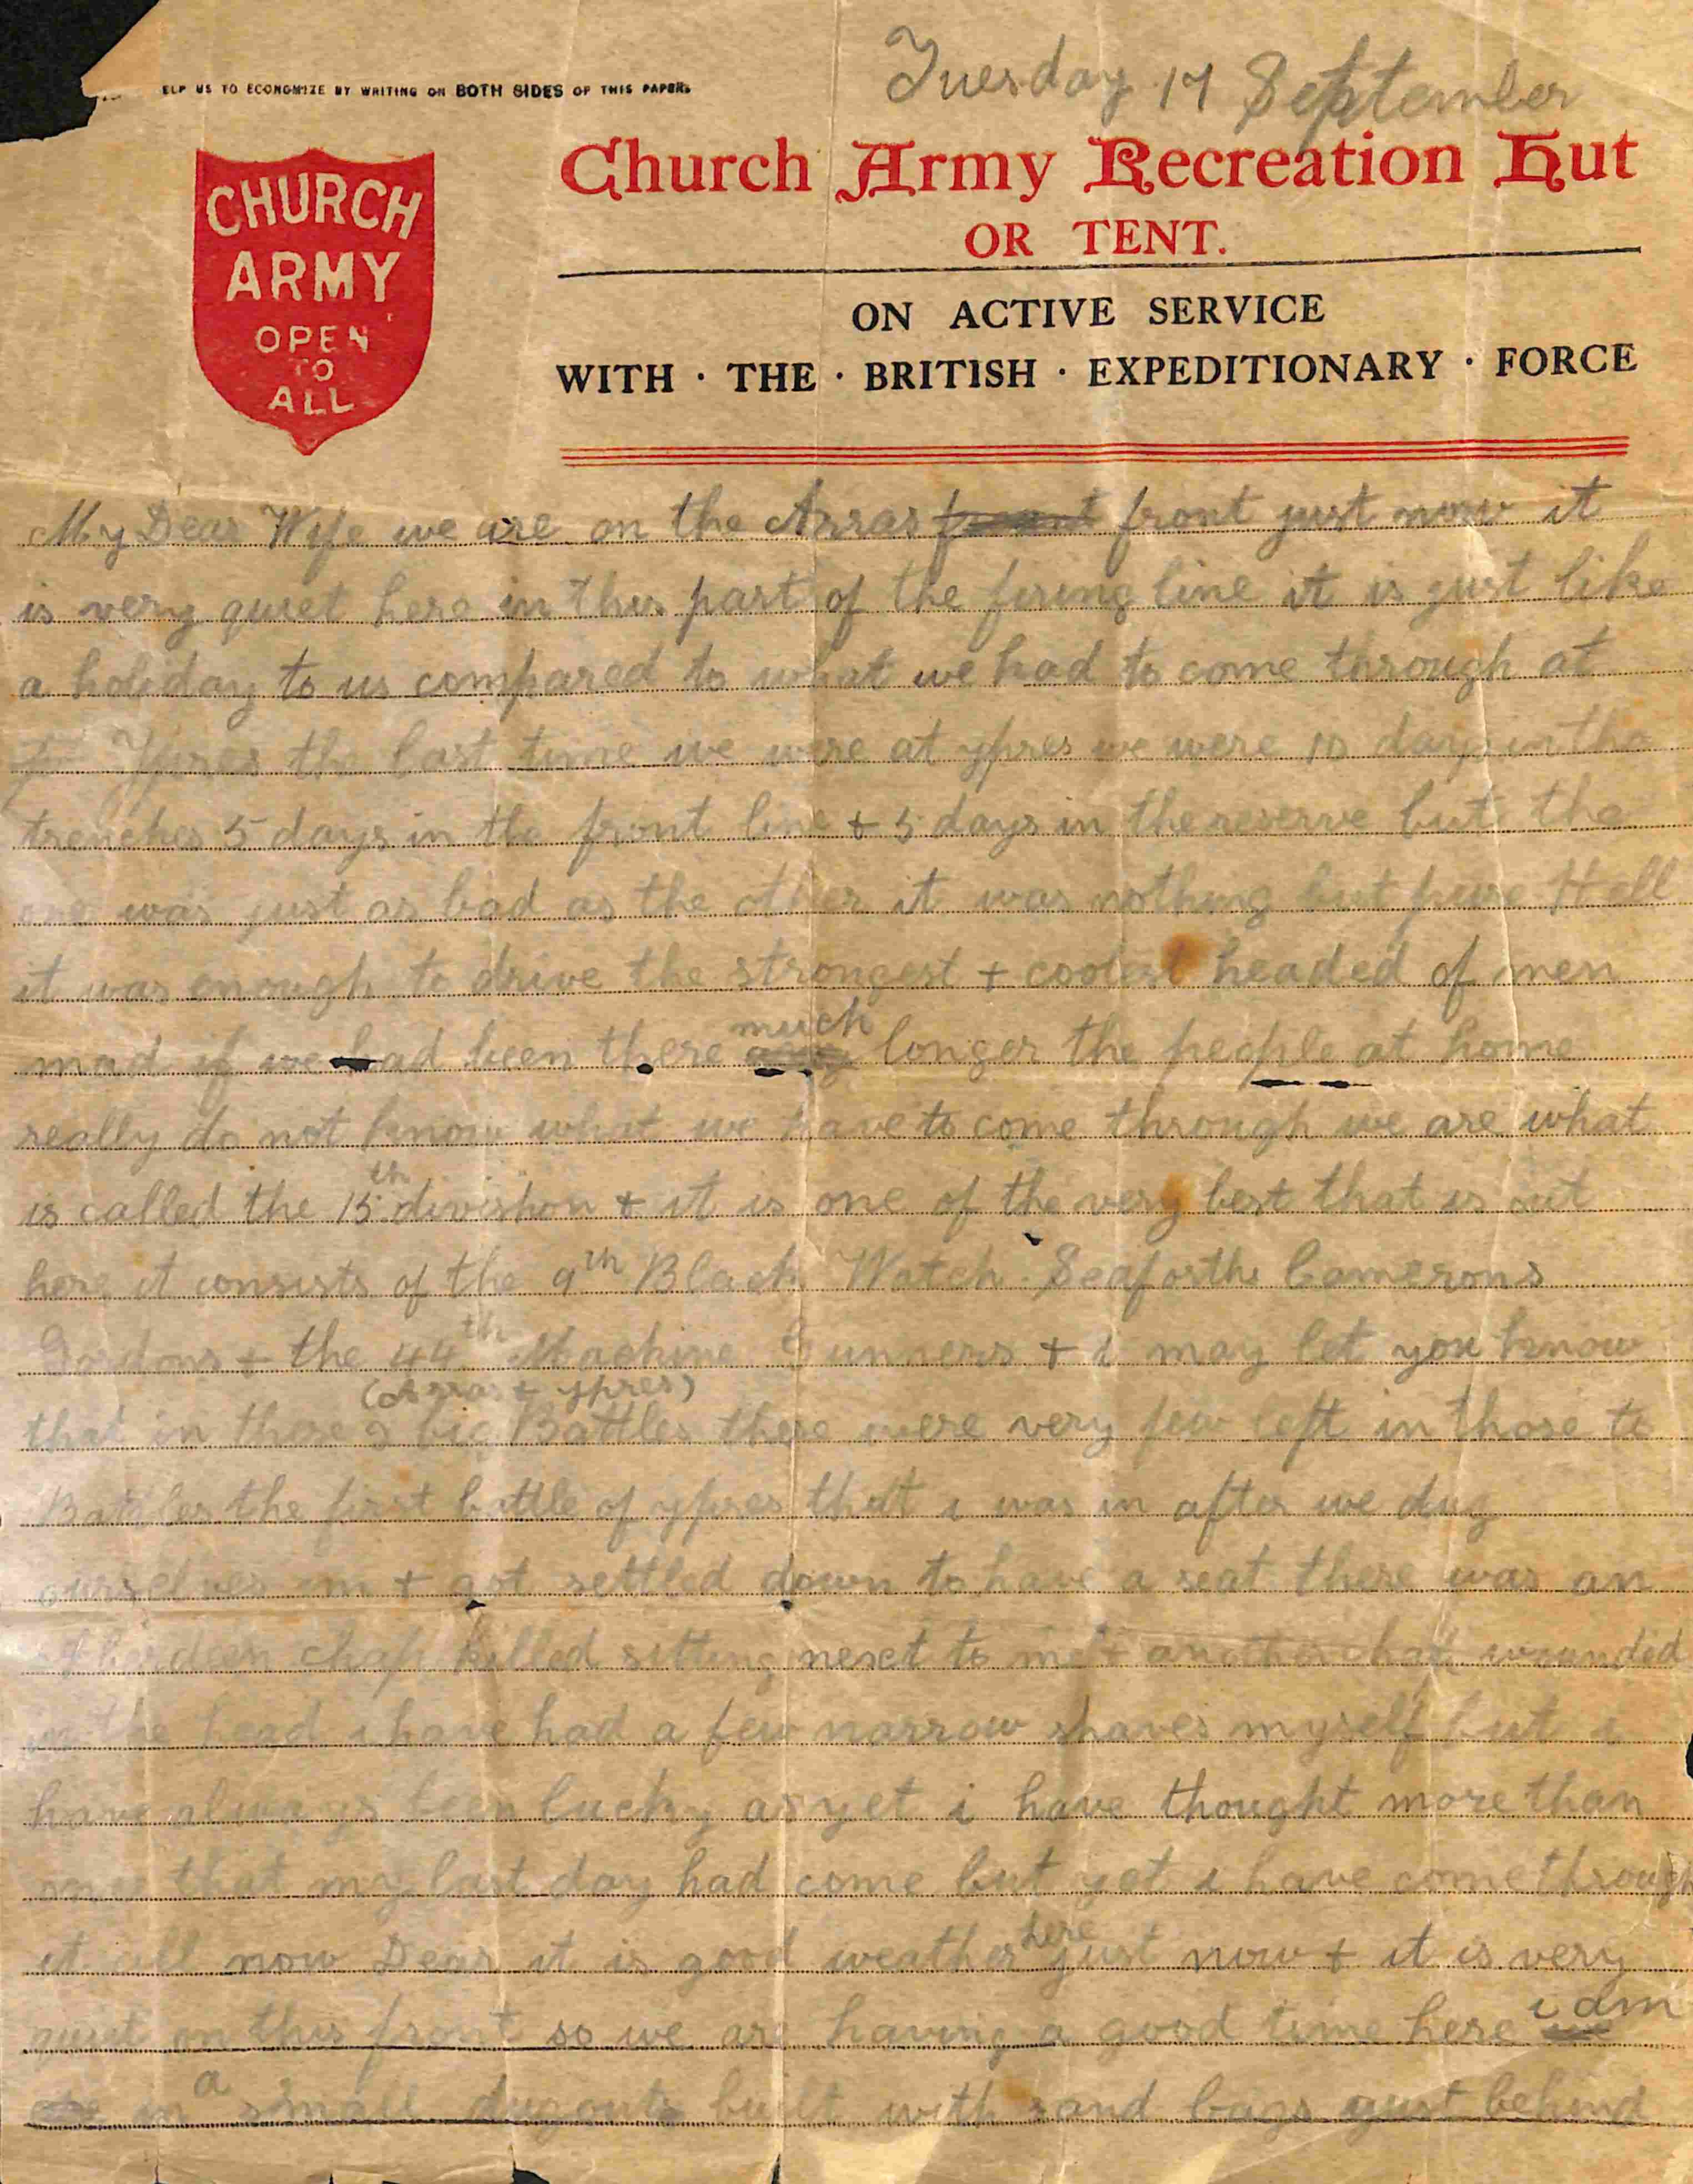 Tuesday 17 September
ELP US TO ECONOMIZE BY WRITING ON BOTH SIDES OF THIS PAPER.
CHURCH
ARMY
OPEN
TO
ALL
Church Army Recreation Hut
OR TENT.
ON ACTIVE SERVICE
WITH · THE · BRITISH · EXPEDITIONARY · FORCE
My Dear Wife we are on the Arras front just now it
is very quiet here in this part of the firing line it is just like
a holiday to us compared to what we had to come through at
Ypres the last time we were at ypres we were 10 days in the
trenches 5 days in the front line + 5 days in the reserve but the
one was just as bad as the other it was nothing but pure Hell
it was enough to drive the strongest + coolest headed of men
mad if we had been there much longer the people at home
really do not know what we have to come through we are what
is called the 15th divishon + it is one of the very best that is out
here it consists of the 9th Black Watch Seaforths Camerons
Gordons + the 44th Machine Gunners + i may let you know
that in those 2 big Battles (Arras + ypres) there were very few left in those to
Battles the first battle of ypres that i was in after we dug
ourselves in + got settled down to have a seat there was an
Aberdeen chap killed sitting next to me + another chap wounded
in the head i have had a few narrow shaves myself but i
have always been lucky as yet i have thought more than
once that my last day had come but yet i have come through
it all now Dear it is good weather here just now + it is very
quiet on this front so we are having a good time here i am
in a small dugout built with sand bags just behind